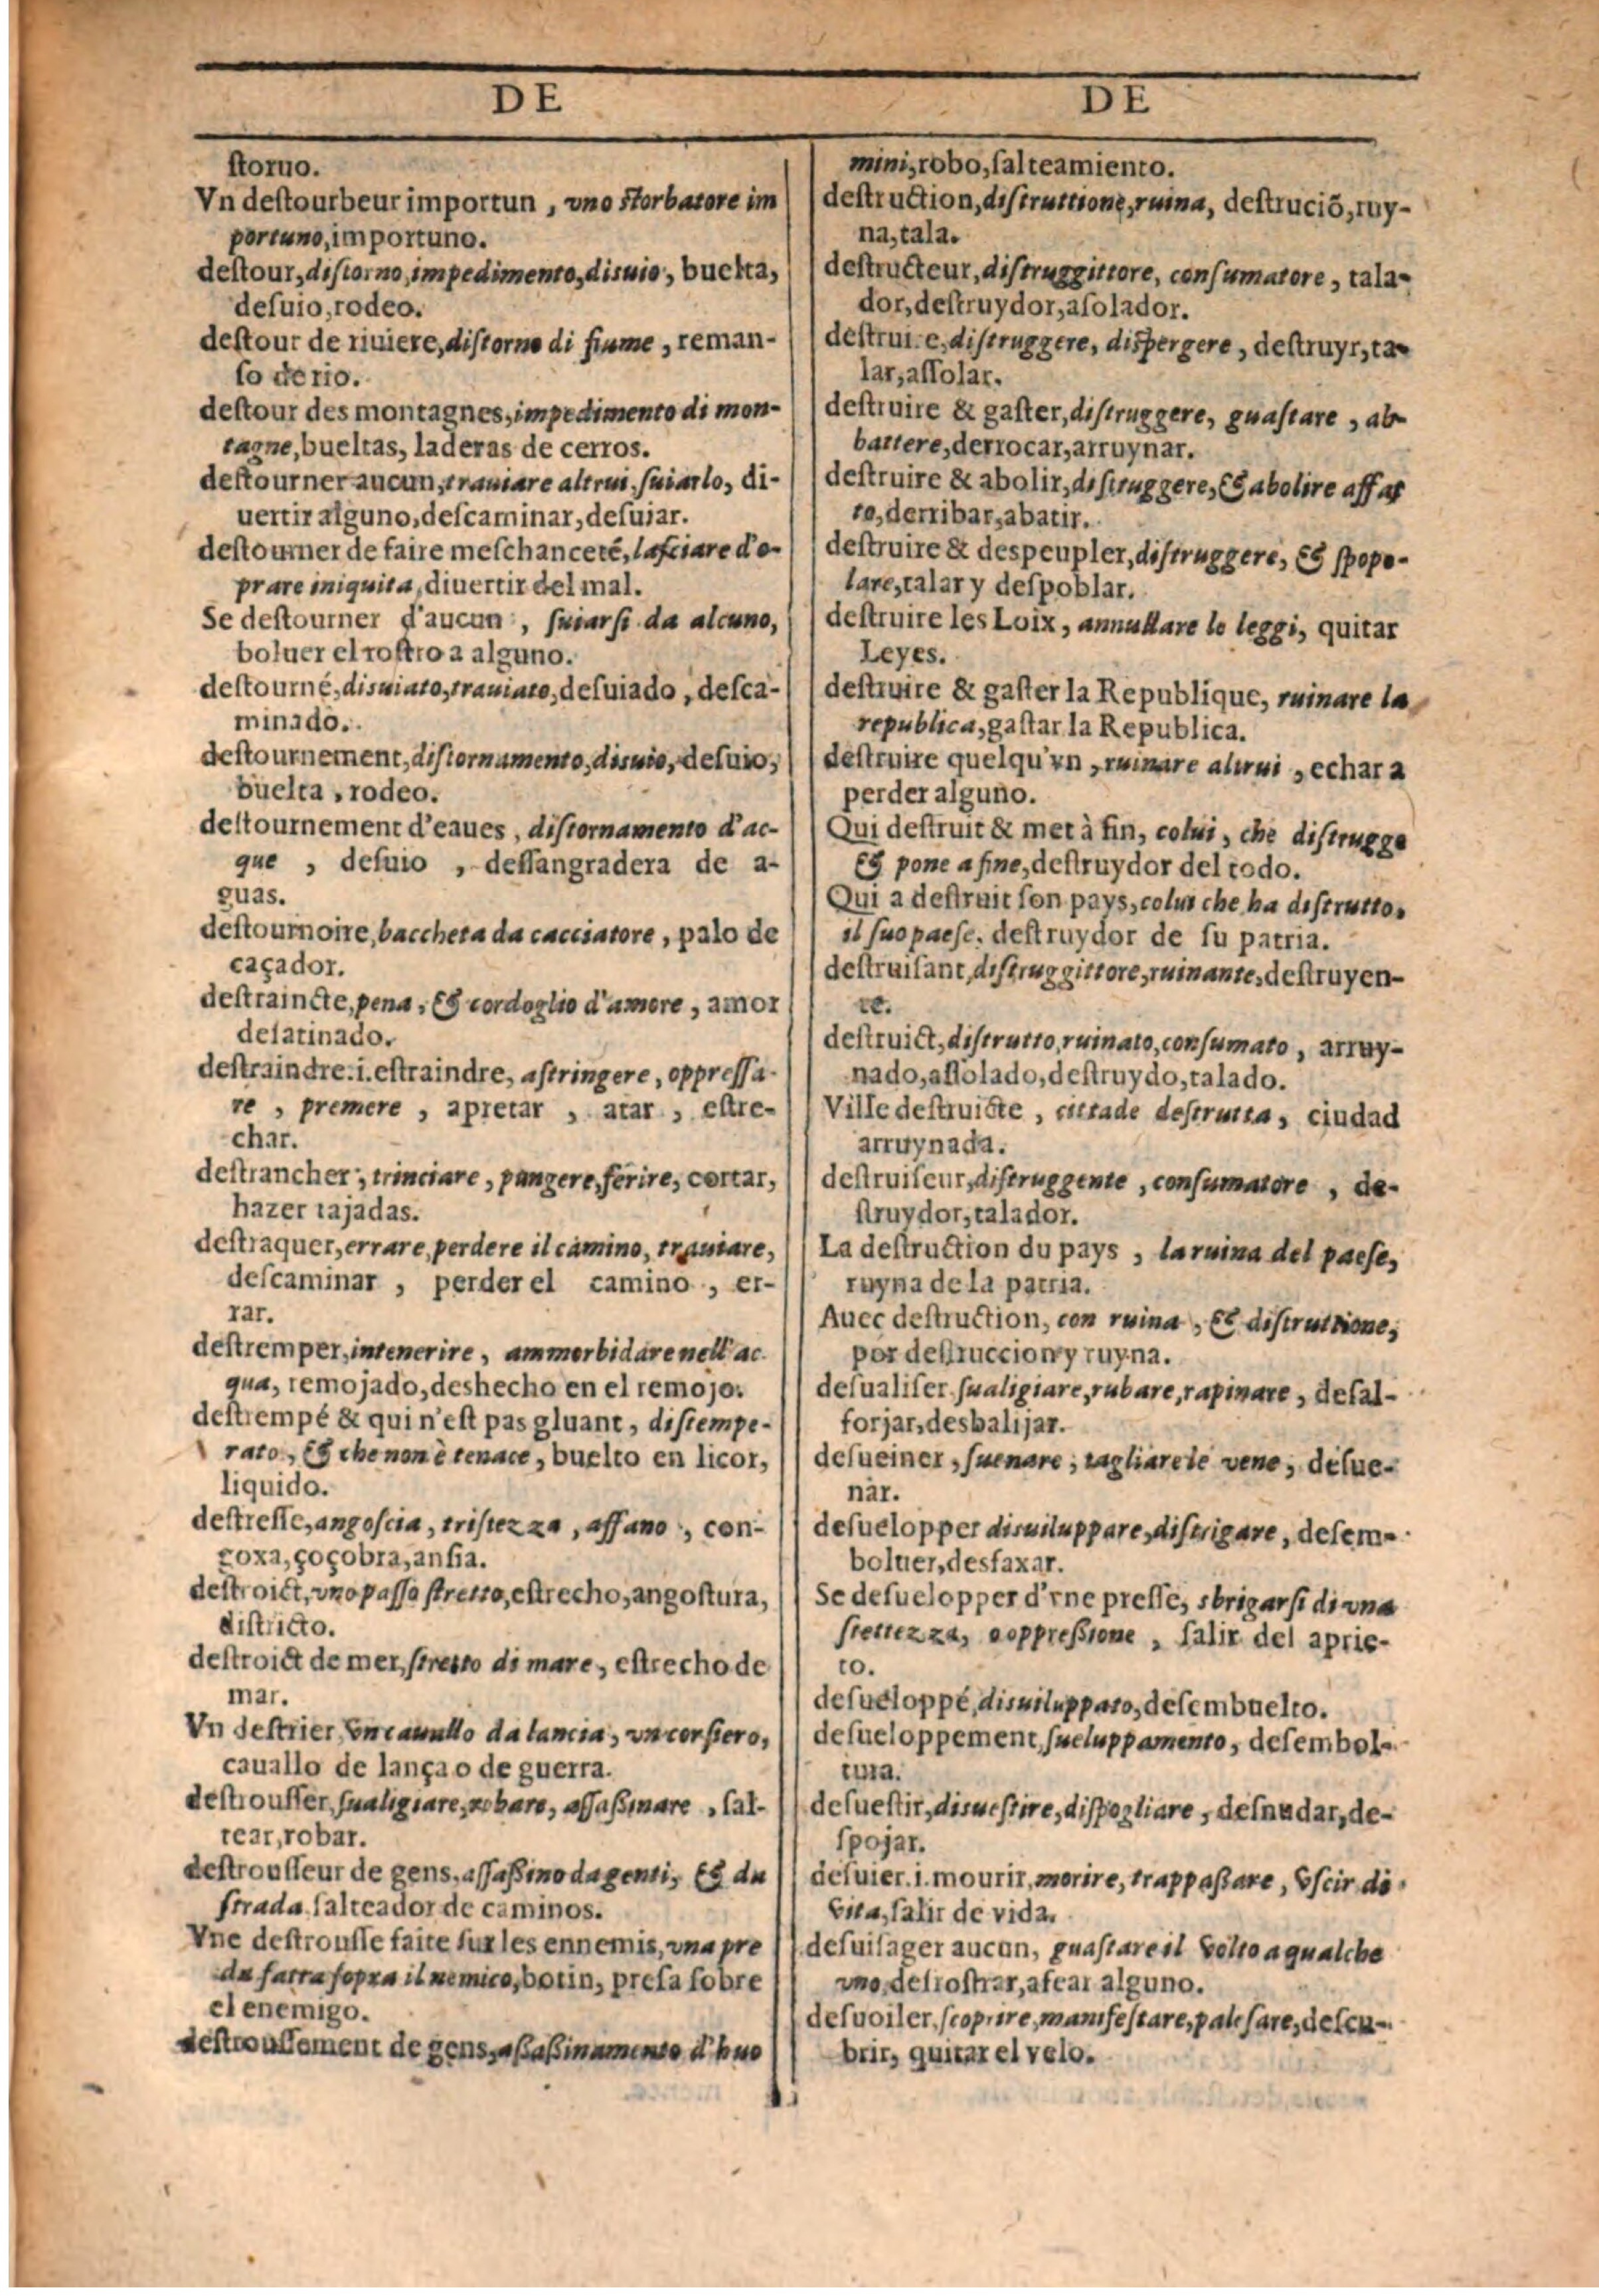 DE
ſtoruo.
Vn deſtourbeur importun, vno ſtorbatore im
portuno, importuno.
deſtour, diſtorno, impedimento, diſuio, buelta,
deſuio, rodeo.
deſtour de riuiere, diſtorno di fiume, reman-
ſo de rio.
deſtour des montagnes, impedimento di mon-
tagne, bueltas, laderas de cerros.
deſtourner aucun, trauiare altrui, ſuiarlo, di-
uertir alguno, deſcaminar, deſuiar.
deſtourner de faire meſchanceté, laſciare d'o-
prare iniquita, diuertir del mal.
Se deſtourner d'aucun, ſuiarſi da alcuno,
boluer el roſtro a alguno.
deſtourné, diſuiato, trauiato, deſuiado, deſca-
minado.
deſtournement, diſtornamento, diſuio, deſuio,
buelta, rodeo.
deſtournement d'eaues, diſtornamento d'ac-
que, deſuio, deſſangradera de a-
guas.
deſtournoire, baccheta da cacciatore, palo de
caçador.
deſtraincte, pena, & cordoglio d'amore, amor
deſatinado.
deſtraindre: i. eſtraindre, aſtringere, oppreſſa-
re, premere, apretar, atar, eſtre-
char.
deſtrancher, trinciare, pungere, ferire, cortar,
hazer tajadas.
deſtraquer, errare, perdere il camino, trauiare,
deſcaminar, perder el camino, er-
rar.
deſtremper, intenerire, ammorbidare nell'ac-
qua, remojado, deshecho en el remojo.
deſtrempé & qui n'eſt pas gluant, diſtempe-
rato, & che non è tenace, buelto en licor,
liquido.
deſtreſſe, angoſcia, triſtezza, affano, con-
goxa, çoçobra, anſia.
deſtroict, vno paſſo ſtretto, eſtrecho, angoſtura,
diſtricto.
deſtroict de mer, ſtretto di mare, eſtrecho de
mar.
Vn deſtrier, vn cauallo da lancia, vn corſiero,
cauallo de lança o de guerra.
deſtrouſſer, ſualigiare, robare, aſſaßinare, ſal-
tear, robar.
deſtrouſſeur de gens, aſſaßino da genti, & da
ſtrada, ſalteador de caminos.
Vne deſtrouſſe faite ſur les ennemis, vna pre
da fatta ſopra il nemico, botin, preſa ſobre
el enemigo.
deſtrouſſement de gens, aßaßinamento d'huo
DE
mini, robo, ſalteamiento.
deſtruction, diſtruttione, ruina, deſtruciõ, ruy-
na, tala.
deſtructeur, diſtruggittore, conſumatore, tala-
dor, deſtruydor, aſolador.
deſtruire, diſtruggere, diſpergere, deſtruyr, ta-
lar, aſſolar.
deſtruire & gaſter, diſtruggere, guaſtare, ab-
battere, derrocar, arruynar.
deſtruire & abolir, diſtruggere, & abolire affat
to, derribar, abatir.
deſtruire & deſpeupler, diſtruggere, & ſpopo-
lare, talar y deſpoblar.
deſtruire les Loix, annullare le leggi, quitar
Leyes.
deſtruire & gaſter la Republique, ruinare la
republica, gaſtar la Republica.
deſtruire quelqu'vn, ruinare altrui, echar a
perder alguno.
Qui deſtruit & met à fin, colui, che diſtrugge
& pone a fine, deſtruydor del todo.
Qui a deſtruit ſon pays, colui che ha diſtrutto,
il ſuo paeſe, deſtruydor de ſu patria.
deſtruiſant, diſtruggittore, ruinante, deſtruyen-
te.
deſtruict, diſtrutto, ruinato, conſumato, arruy-
nado, aſſolado, deſtruydo, talado.
Ville deſtruicte, cittade deſtrutta, ciudad
arruynada.
deſtruiſeur, diſtruggente, conſumatore, de-
ſtruydor, talador.
La deſtruction du pays, la ruina del paeſe,
ruyna de la patria.
Auec deſtruction, con ruina, & diſtruttione,
por deſtruccion y ruyna.
deſualiſer, ſualigiare, rubare, rapinare, deſal-
forjar, desbalijar.
deſueiner, ſuenare, tagliare le vene, deſue-
nar.
deſuelopper, diſuiluppare, diſtrigare, deſem-
boluer, desfaxar.
Se deſuelopper d'vne preſſe, sbrigarſi di vna
ſtettezza, o oppreßione, ſalir del aprie-
to.
deſueloppé, diſuiluppato, deſembuelto.
deſueloppement, ſueluppamento, deſembol-
tura.
deſueſtir, diſueſtire, diſpogliare, deſnudar, de-
ſpojar.
deſuier. i. mourir, morire, trappaßare, vſcir di
vita, ſalir de vida.
deſuiſager aucun, guaſtare il volto a qualche
vno, deſroſtrar, afear alguno.
deſuoiler, ſcoprire, manifeſtare, paleſare, deſcu-
brir, quitar el velo.